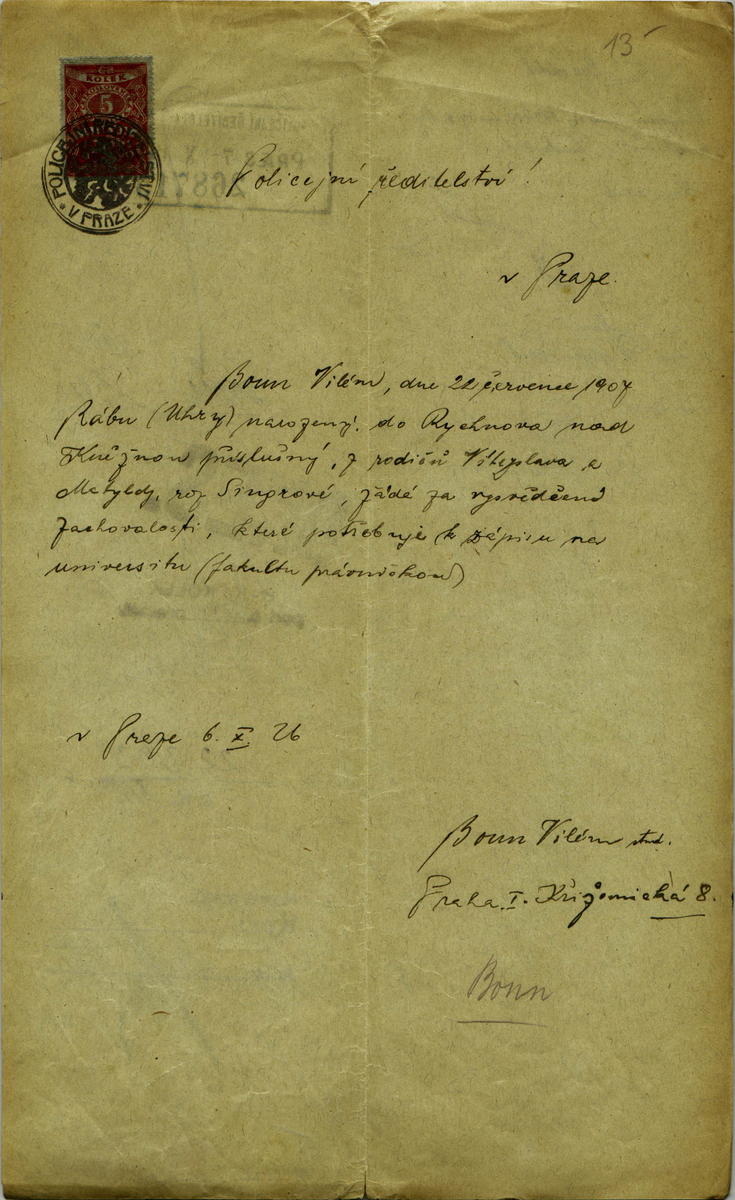 13
KOLEK
5
POLICEJNÍ ŘEDITELSTVÍ
V PRAZE
Policejní ředitelství!
v Praze.
Bonn Vilém, dne 22 července 1907
Rábu (Uhry) narozený, do Rychnova nad
Kněžnou příslušný, z rodičů Vítězslava a
Matyldy, roz Singrové, žádá za vysvědčení
zachovalosti, které potřebuje k zápisu na
universitu (fakultu právnickou)
v Praze 6. X. 26
Bonn Vilém stud.
Praha I. Křižovnická 8.
Bonn